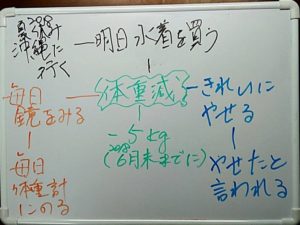 夏休み
沖縄に
行く
明日 水着を買う
体重減
きれいに
やせる
やせたと
言われる
-5kg
(6月末までに)
毎日
鏡をみる
毎日
体重計
にのる